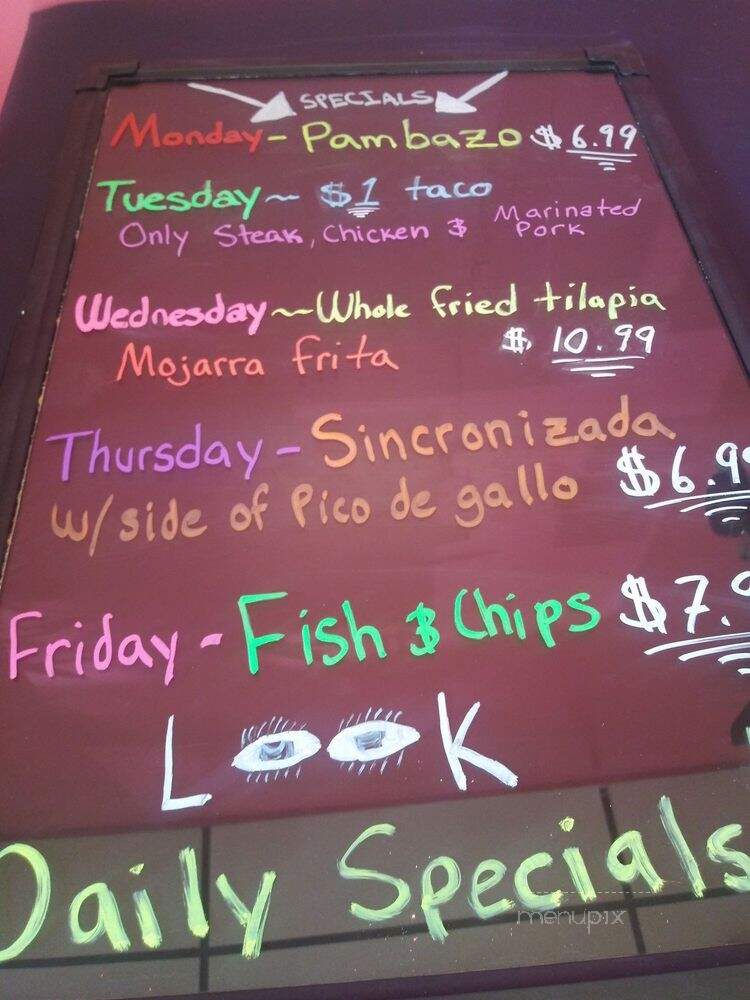 SPECIALS
Monday - Pambazo $6.99
Tuesday ~ $1 taco
Only Steak, Chicken & Marinated Pork
Wednesday ~ Whole fried tilapia
Mojarra frita $10.99
Thursday - Sincronizada
w/side of Pico de gallo $6.9
Friday - Fish & Chips $7.
LOOK
Daily Specials
menupix